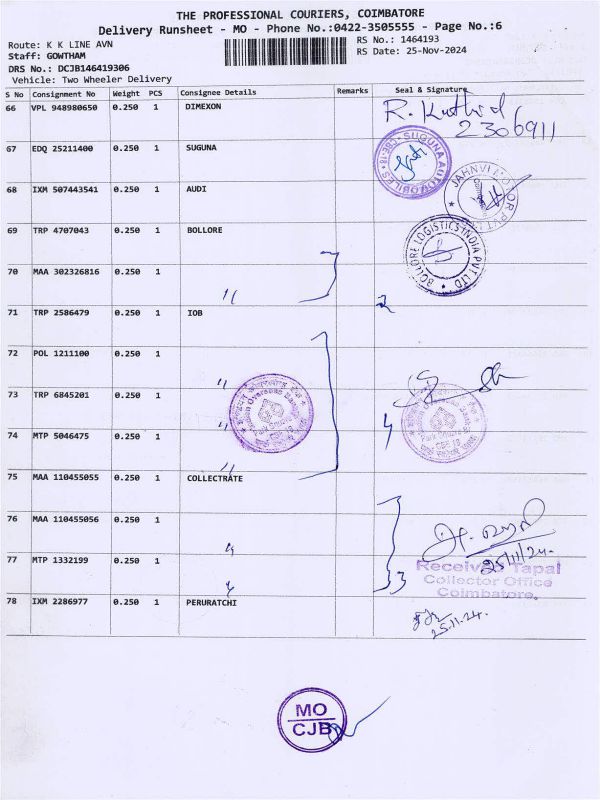 THE PROFESSIONAL COURIERS, COIMBATORE
Delivery Runsheet - MO - Phone No.:0422-3505555 - Page No.:6
Route: K K LINE AVN
RS No.: 1464193
Staff: GOWTHAM
RS Date: 25-Nov-2024
DRS No.: DCJB146419306
Vehicle: Two Wheeler Delivery
S No Consignment No Weight PCS Consignee Details Remarks Seal & Signature
66 VPL 948980650 0.250 1 DIMEXON
2306911
67 EDQ 25211400 0.250 1 SUGUNA
SUGUNA AUTOMOBILES CBE-18
68 IXM 507443541 0.250 1 AUDI
JAHNVI MOTOR PVT LTD
69 TRP 4707043 0.250 1 BOLLORE
BOLLORE LOGISTICS INDIA PVT LTD.
70 MAA 302326816 0.250 1 "
71 TRP 2586479 0.250 1 IOB
2
72 POL 1211100 0.250 1 "
73 TRP 6845201 0.250 1 "
Indian Overseas Bank
CBE 18
4
74 MTP 5046475 0.250 1 "
75 MAA 110455055 0.250 1 COLLECTRATE
76 MAA 110455056 0.250 1 "
25/11/24.
77 MTP 1332199 0.250 1 "
3
Received Tapal
Collector Office
Coimbatore.
78 IXM 2286977 0.250 1 PERURATCHI
25.11.24.
MO
CJB